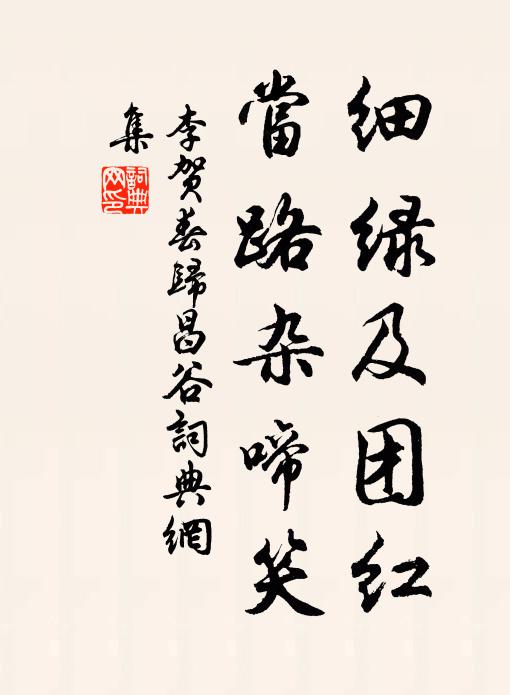 细绿及团红
當路杂啼笑
李贺春歸昌谷詞典網
集
詞典
网印